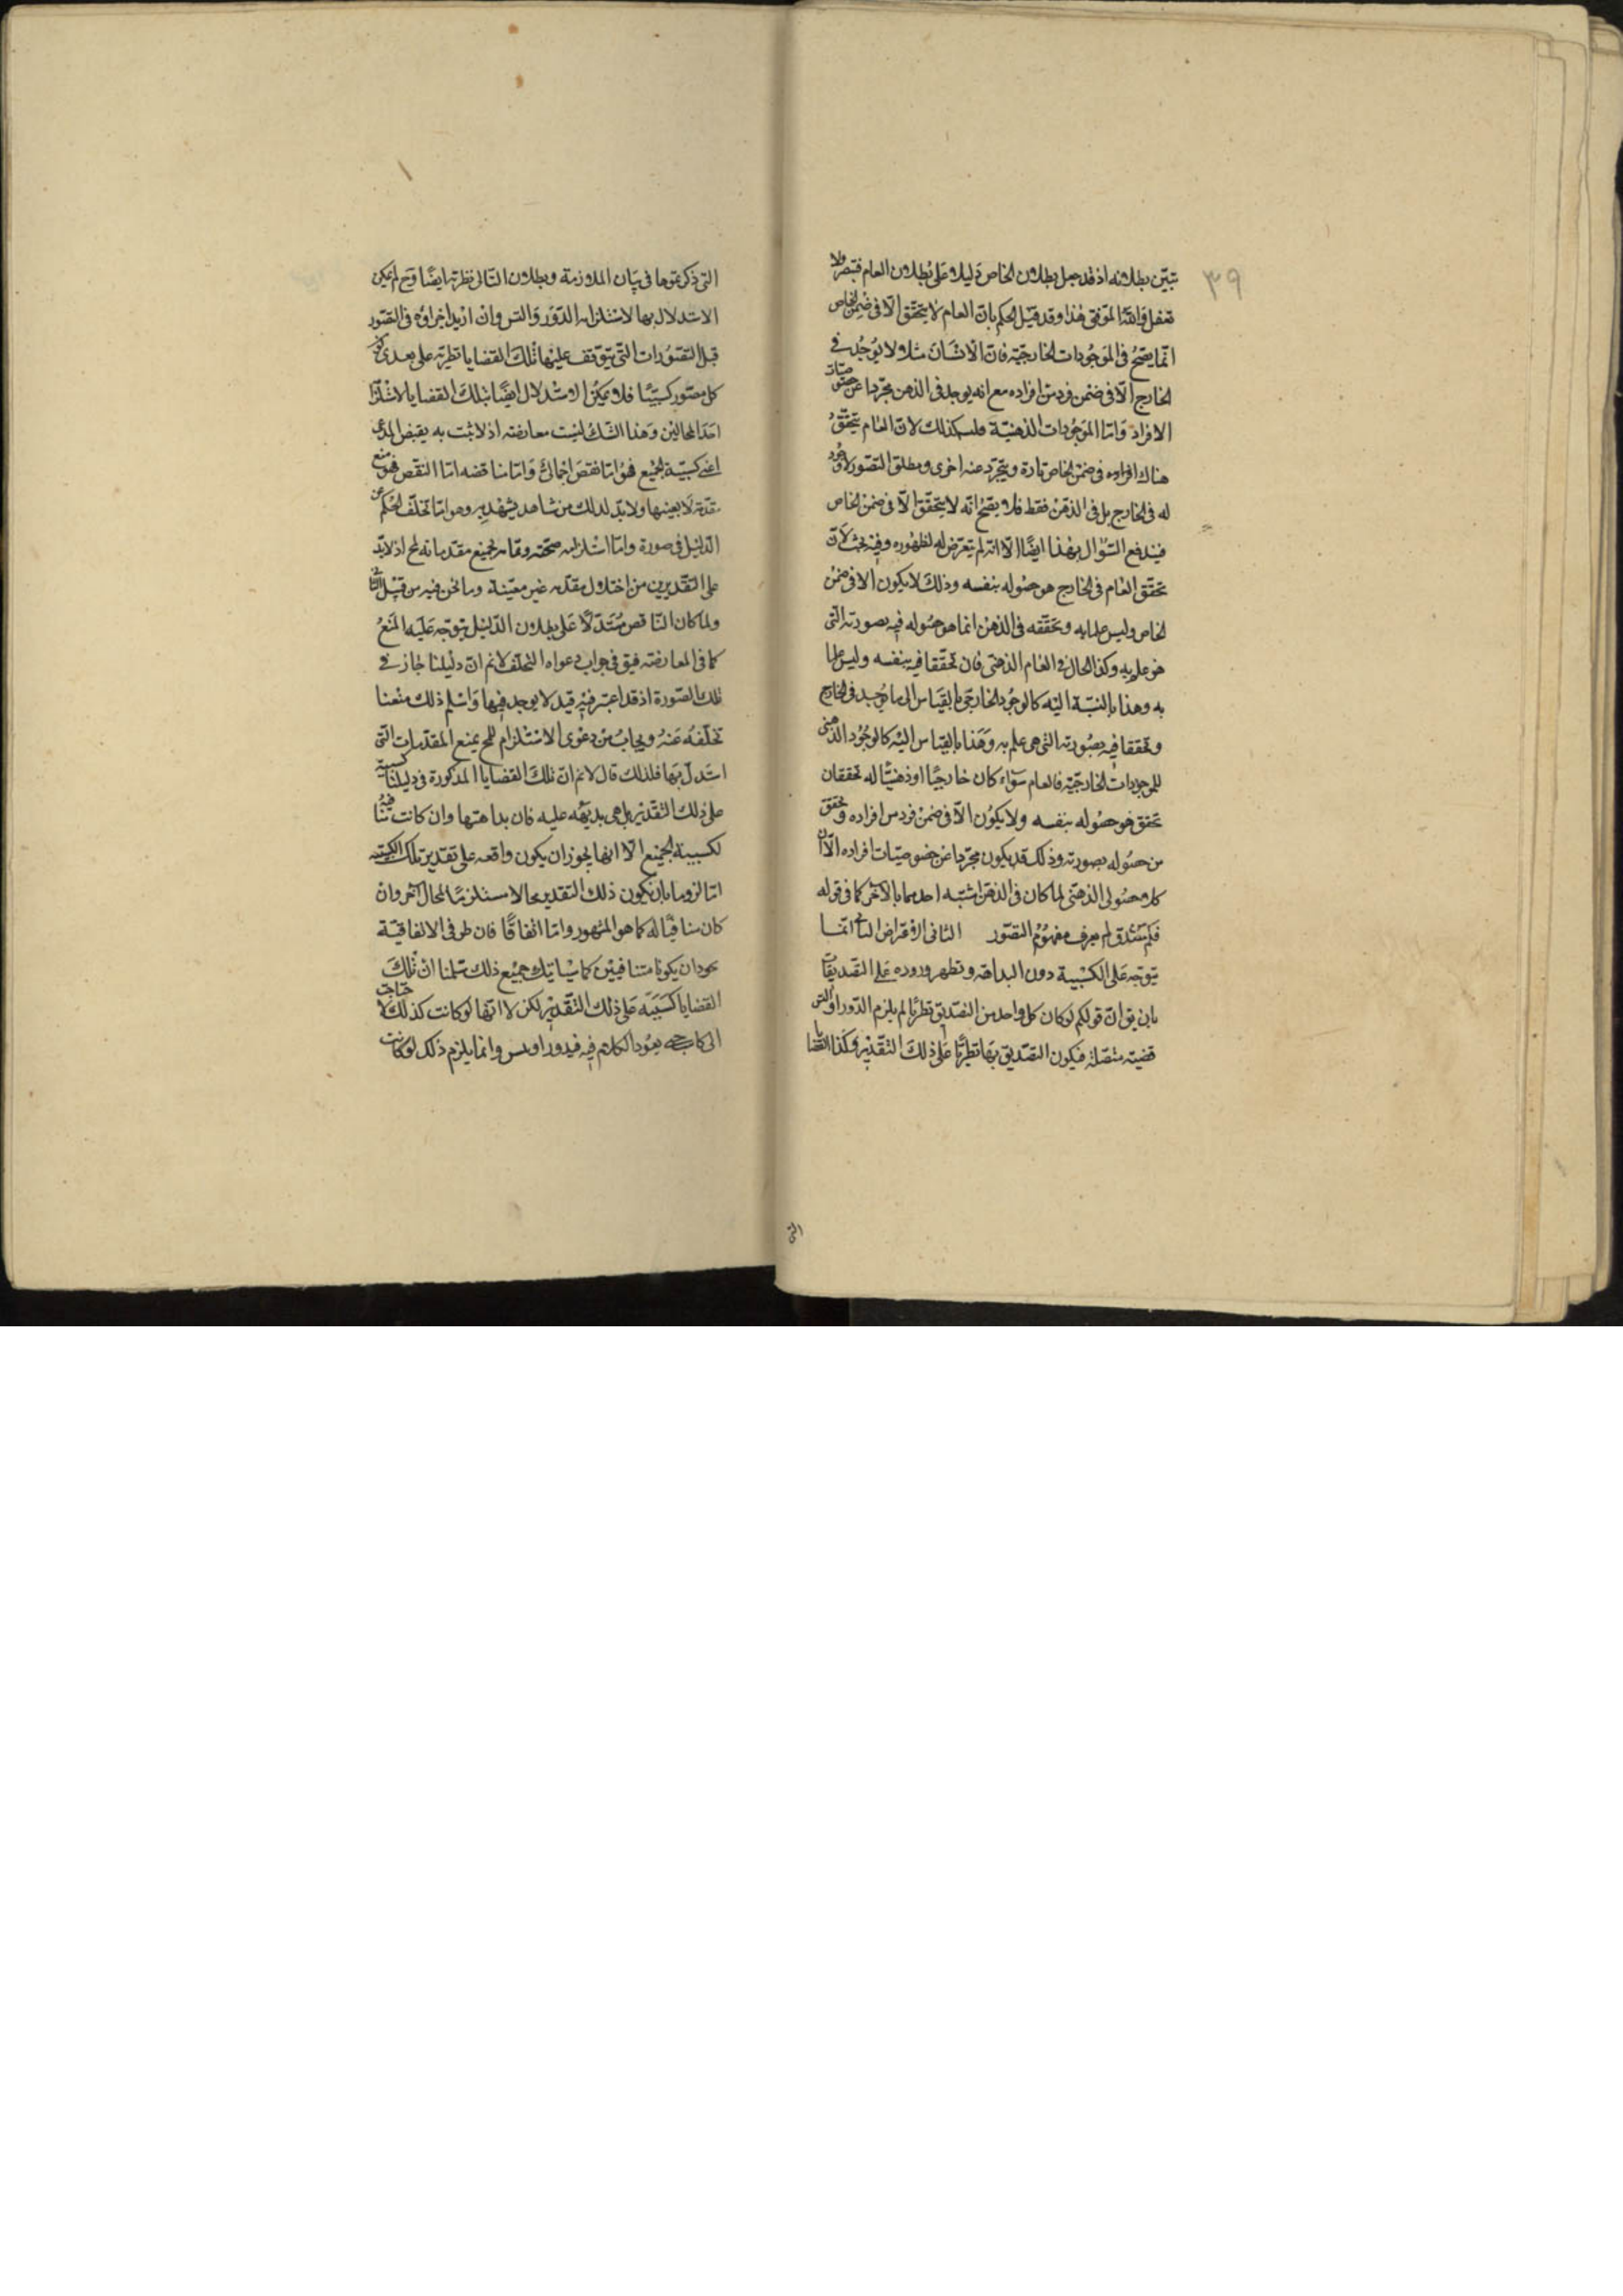 ٣٩
تبيّن بطلانه اذ قد جعل بطلان الخاص دليلا على بطلان العام فتبصر ولا
تغفل والله الموفق هذا وقد قيل الحكم بانّ العام لا يتحقق الّا فى ضمن الخاص
انّما يصحّ فى الموجودات الخارجيّة فانّ الانسان مثلا ولا يوجد فى
الخارج الّا فى ضمن فرد من افراده مع انه يوجد فى الذهن مجرّدا عن خصوصيّات
الافراد وامّا الموجودات الذهنيّة فليس كذلك لانّ العام يتحقّق
هناك افراده فى ضمن الخاص تارة ويتجرّد عنه اخرى ومطلق التصوّر لا وجود
له فى الخارج بل فى الذهن فقط فلا يصحّ انّه لا يتحقّق الّا فى ضمن الخاص
فيندفع السّؤال بهذا ايضًا الّا انّه لم يتعرّض له لظهوره وفيه بحث لانّ
تحقّق العام فى الخارج هو حصوله بنفسه وذلك لا يكون الا فى ضمن
الخاص وليس علما به وتحقّقه فى الذهن انما هو حصوله فيه بصورته الّتى
هو علم به وكذا الحال فى العام الذهنى فان تحققا فيه بنفسه وليس علما
به وهذا بالنسبة اليه كالوجود الخارجى بالقياس الى ما يوجد فى الخارج
وتحققا فيه بصورته الّتى هى علم به وهذا بالقياس اليه كالوجود الذهنى
للموجودات الخارجيّة فالعام سواء كان خارجيّا او ذهنيّا له تحققان
تحقق هو حصوله بنفسه ولا يكون الّا فى ضمن فرد من افراده وتحقق
من حصوله بصورته وذلك قد يكون مجرّدا عن خصوصيّات افراده الّا ان
كلا حصولى الذهنى لما كان فى الذهن اشتبه احدهما بالآخر كما فى قوله
فكم مصدق لم يعرف مفهوم التصوّر الثانى الاعتراض الثانى انّما
يتوجّه على الكسبية دون البداهة ويظهر وروده على التصديقات
بان يق انّ قولكم لو كان كل واحد من التصديق نظريّا لم يلزم الدّور او التس
قضية متصلة فيكون التصديق بها نظريّا على ذلك التقدير وكذا القضايا
التى
التى ذكرتموها فى بيان الملازمة وبطلان التالى نظرية ايضًا وح لم يمكن
الاستدلال بها لاستلزامه الدّور والتس وان اريد اجراؤه فى التصور
قيل التصورات التى يتوقف عليها تلك القضايا نظريّة على تقدير كون
كل تصوّر كسبيّا فلا يمكن الاستدلال ايضًا بتلك القضايا لاستلزامه
احد المحالين وهذا الشك ليست معارضة اذ لا ثبت به نقيض المدعى
اعنى كسبيّة الجميع فهو امّا نقض اجمالىّ وامّا مناقضه امّا النقض فهو منع
مقدّمة لا بعينها ولا بدّ لذلك من شاهد يشهد به وهو امّا تخلّف الحكم عن
الدّليل فى صورة وامّا استلزام صحّته وتمامه لجميع مقدّماته لمح اذ لا بدّ
على التقديرين من اختلال مقدّمه غير معيّنة وما نحن فيه من قبيل الثانى
ولمّا كان النّاقض مستدلّا على بطلان الدّليل يتوجّه عليه المنع
كما فى المعارضة فيق فى جواب دعواه التخلف لا نم انّ دليلنا جاز فى
تلك الصّورة اذ قد اعتبر فيه قيد لا يوجد فيها واسلم ذلك منعنا
تخلّفه عنه ويجاب من دعوى الاستلزام للمح بمنع المقدّمات التى
استدلّ بها فلذلك قال لا نم انّ تلك القضايا المذكورة فى دليلنا كسبية
على ذلك التقدير بل هى بديهيّه عليه فان بداهتها وان كانت منافية
لكسبية الجميع الّا انها يجوز ان يكون واقعه على تقدير تلك الكسبيّه
امّا لزوما بان يكون ذلك التقدير محالا مستلزمًا لمحال آخر وان
كان منافيًا له كما هو المشهور وامّا اتفاقًا فان طرفى الاتفاقيّة
يجوز ان يكونا متنافيين كما سياتيك جميع ذلك سلمنا انّ تلك
القضايا كسبيّة على ذلك التّقدير لكن لا انّها لو كانت كذلك لاحتاجت
الى كاسب يعود الكلام فيه فيدور او يتس وانما يلزم ذلك لو كانت